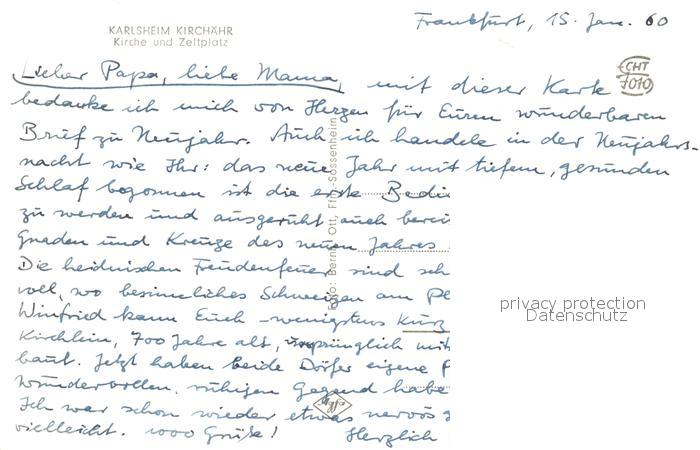 Frankfurt, 15. Jan. 60
KARLSHEIM KIRCHÄHR
Kirche und Zeltplatz
CHT
7010
Lieber Papa, liebe Mama, mit dieser Karte
bedanke ich mich von Herzen für Euren wunderbaren
Brief zu Neujahr. Auch ich handele in der Neujahrs-
nacht wie Ihr: das neue Jahr mit tiefem, gesunden
Schlaf begonnen ist die erste Bedi
zu werden und ausgeruht auch berei
Gnaden und Kreuze des neuen Jahres
Die heidnischen Freudenfeuer sind sch
voll, wo besinnliches Schweigen am Pl
Winfried kann Euch wenigstens kurz
Kirchlein, 700 Jahre alt, ursprünglich mit
baut. Jetzt haben beide Dörfer eigene P
wundervollen, ruhigen Gegend habe
Ich war schon wieder etwas nervös
vielleicht. 1000 Grüße! Herzlich
Foto: Bernh. Ott, Ffm.-Sossenheim
Agfa
privacy protection
Datenschutz